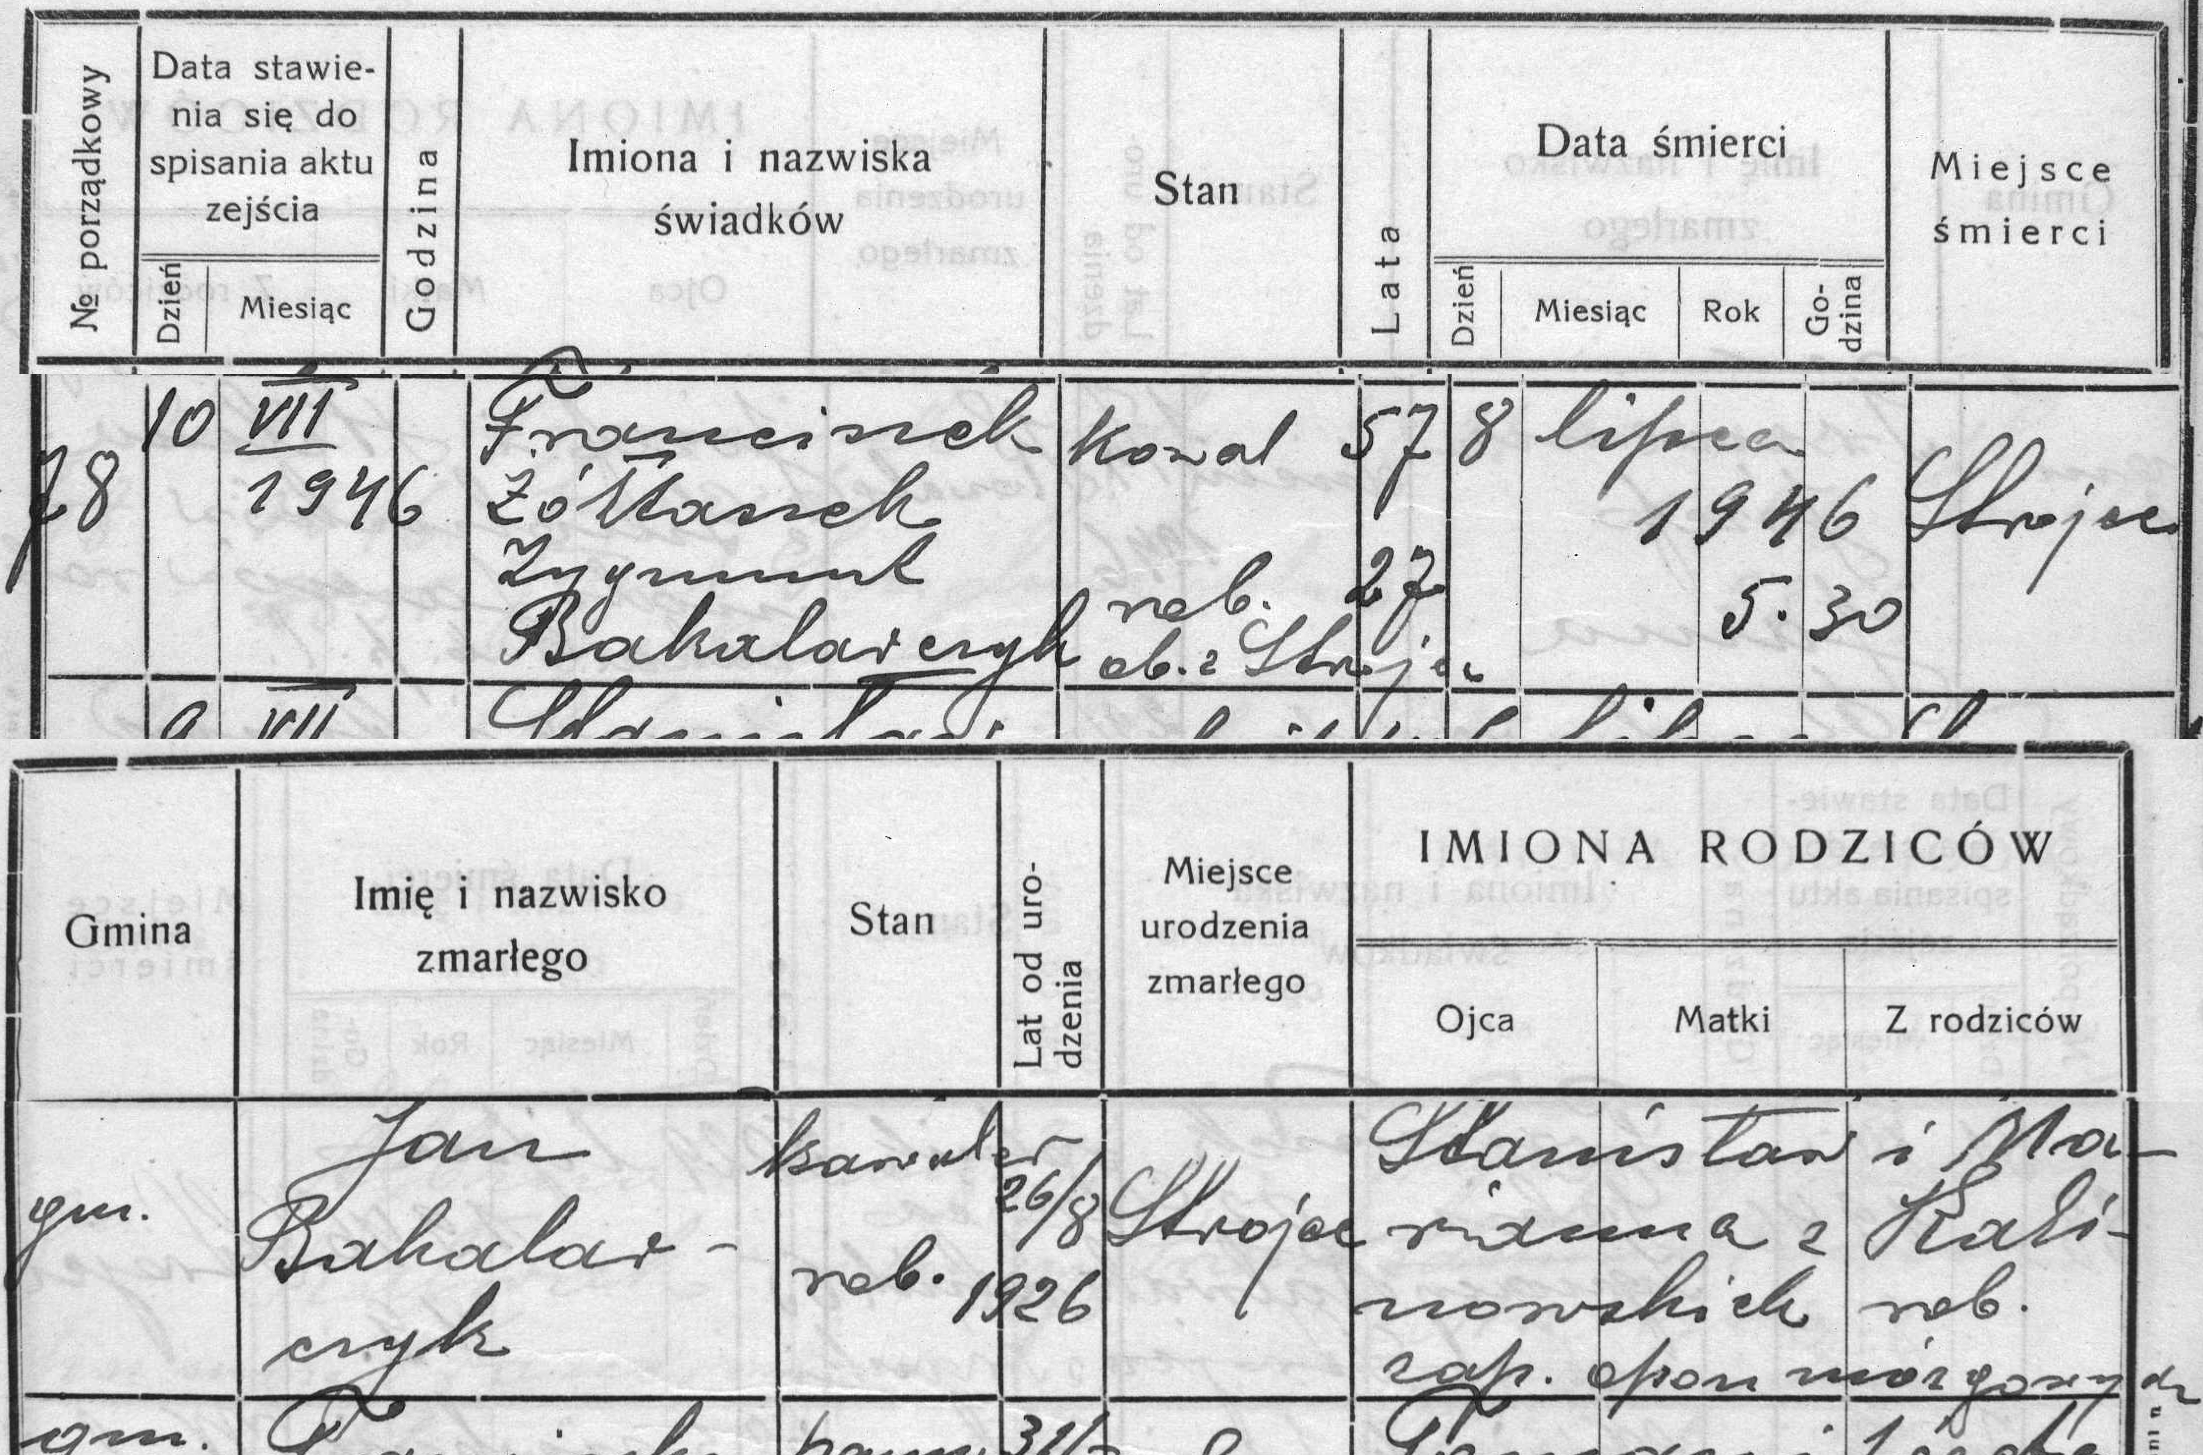 № porządkowy
Data stawie-
nia się do
spisania aktu
zejścia
Dzień
Miesiąc
Godzina
Imiona i nazwiska
świadków
Stan
Lata
Data śmierci
Dzień
Miesiąc
Rok
Go-
dzina
Miejsce
śmierci
78
10 VII
1946
Franciszek
Żółtaszek
Zygmunt
Bakalarczyk
Kowal 57
rob. 27
ob. z Strojec
8 lipca
1946
5.30
Strojec
9 VII
Stanisław
Gmina
Imię i nazwisko
zmarłego
Stan
Lat od uro-
dzenia
Miejsce
urodzenia
zmarłego
IMIONA RODZICÓW
Ojca
Matki
Z rodziców
gm.
Jan
Bakalar-
czyk
kawaler
rob.
26/8
1926
Strojec
Stanisław i Ma-
rianna z Kali-
nowskich rob.
zap. opon mózgowych
gm.
31/